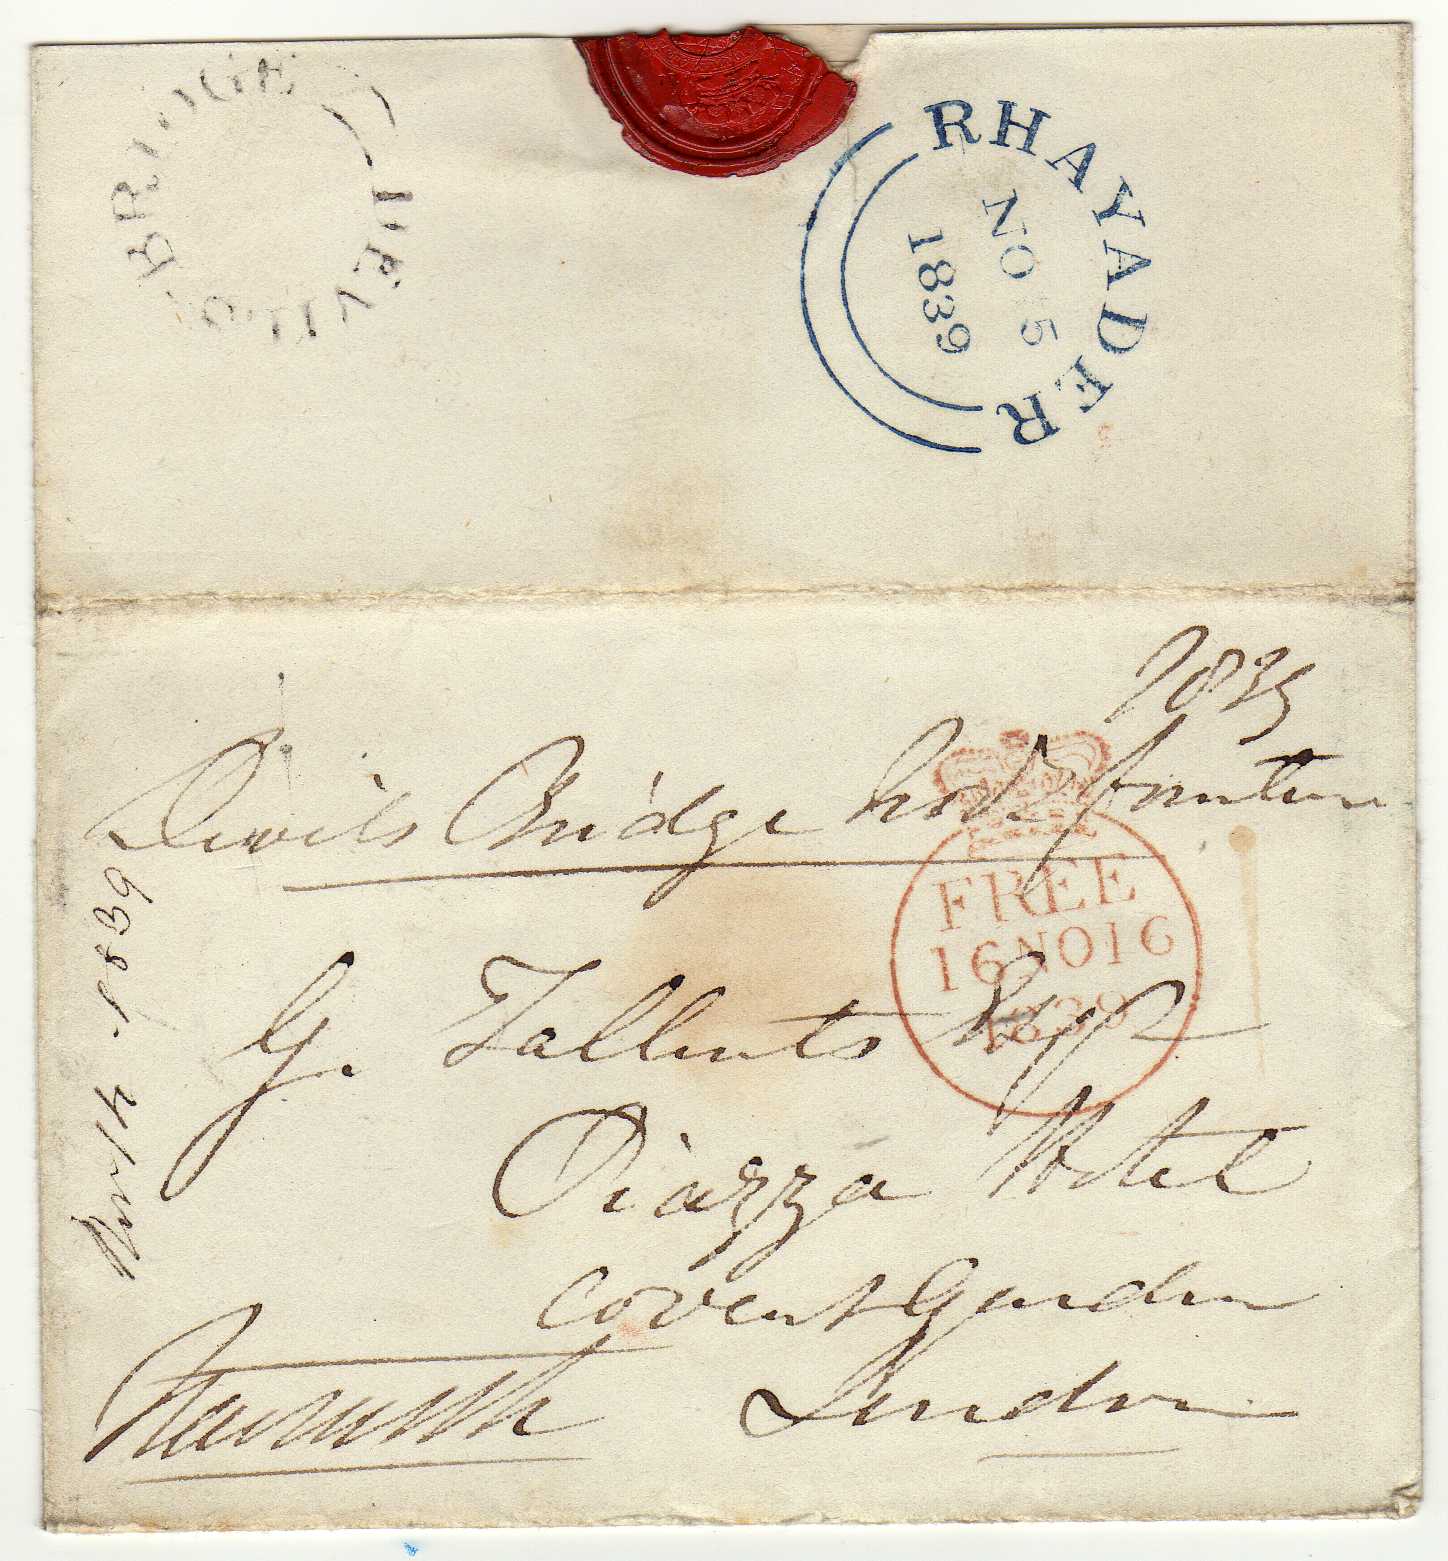 DEVIL'S BRIDGE
RHAYADER
NO 5
1839
1839
Devils Bridge
FREE
16 NO 16
1839
G. Tallents Esqr
Piazza Hotel
Covent Garden
London
1839